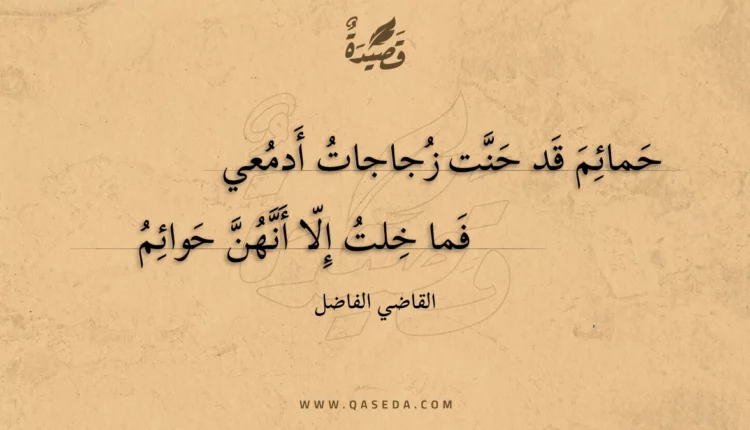 قَصِيدَةٌ
حَمائِمَ قَد حَنَّت زُجاجاتُ أَدمُعي
فَما خِلتُ إِلّا أَنَّهُنَّ حَوائِمُ
القاضي الفاضل
WWW.QASEDA.COM